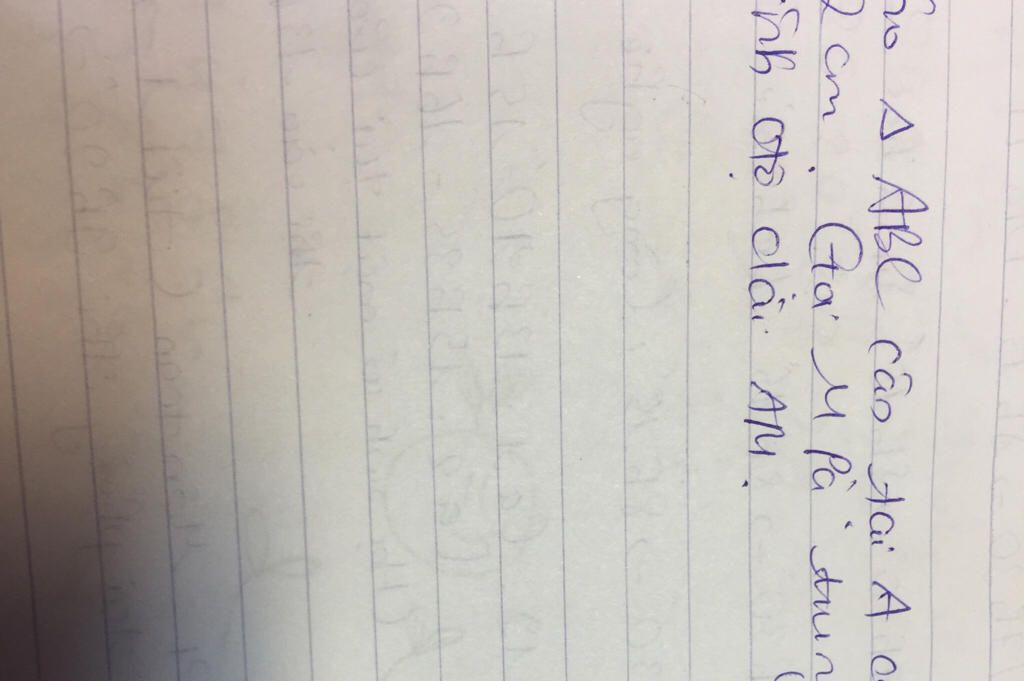 Δ ABC cân tại A
2 cm. Gọi M là
tính độ dài AM.